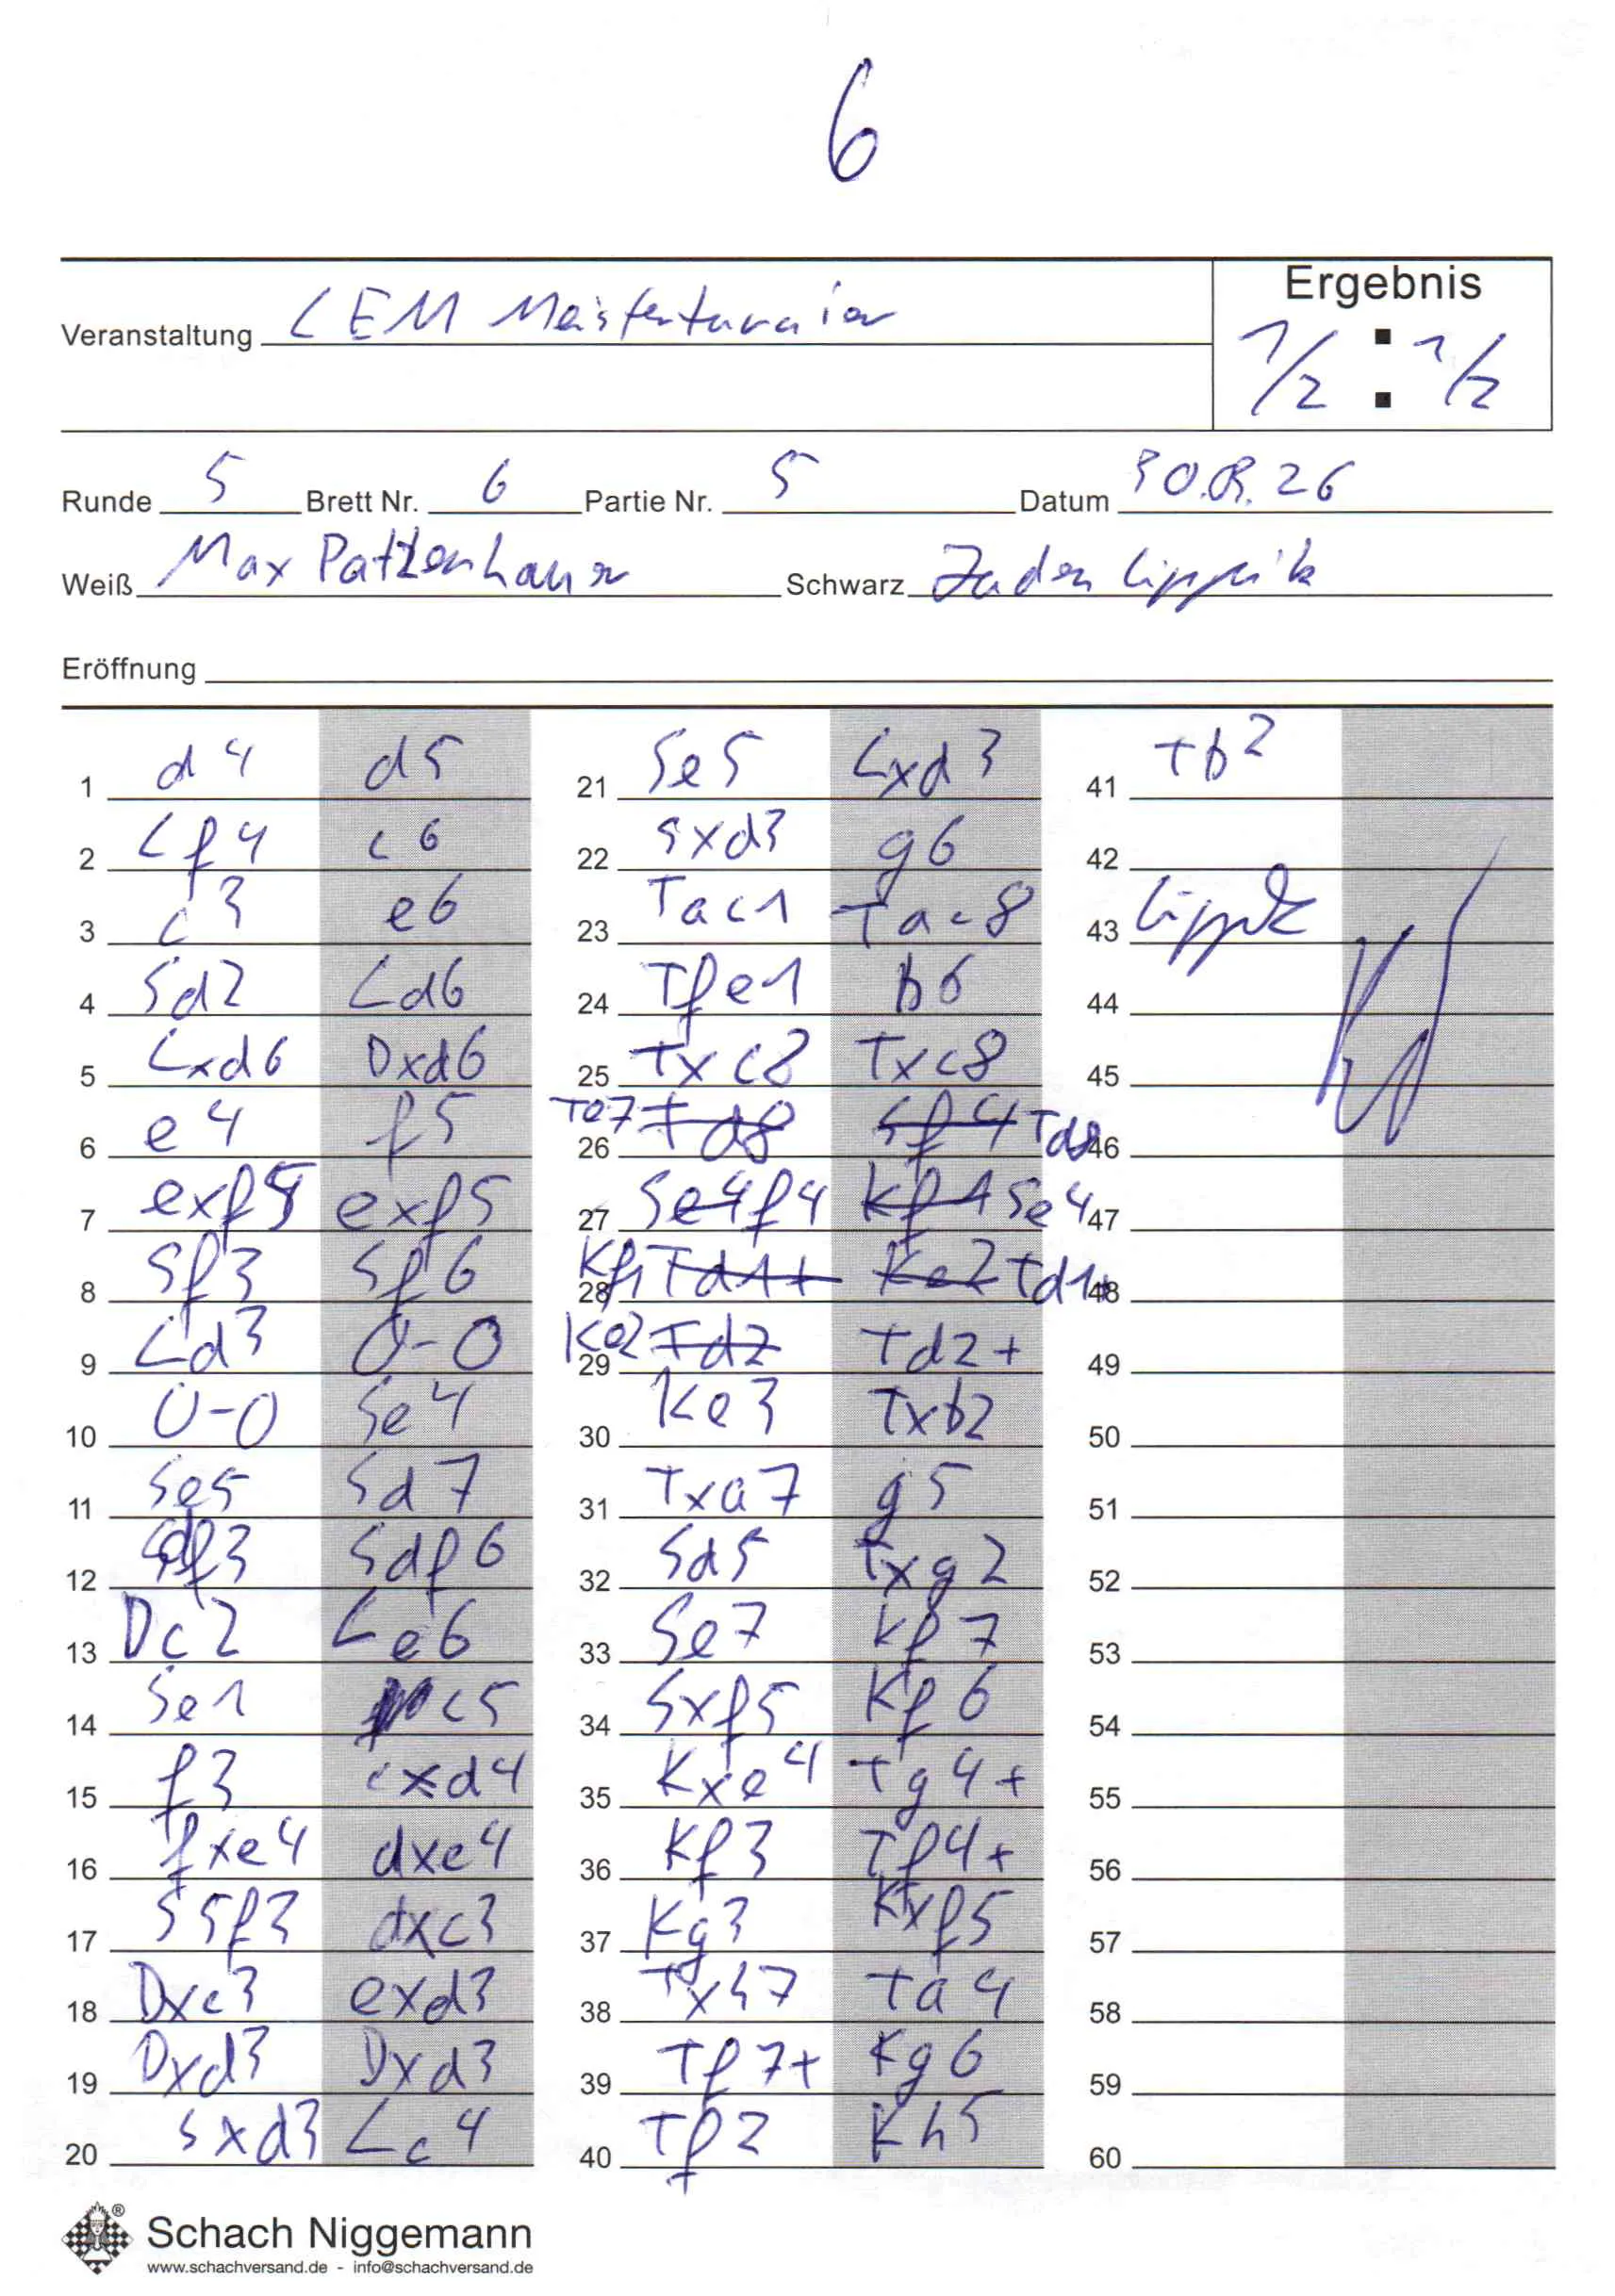 6
Veranstaltung LEM Meisterturnier
Ergebnis
1/2 : 1/2
Runde 5 Brett Nr. 6 Partie Nr. 5 Datum 30.03.26
Weiß Max Schwarz
Eröffnung
1 d4 d5
2 Lf4 c6
3 c3 e6
4 Sd2 Ld6
5 Lxd6 Dxd6
6 e4 f5
7 exf5 exf5
8 Sf3 Sf6
9 Ld3 0-0
10 0-0 Se4
11 Se5 Sd7
12 Sdf3 Sdf6
13 Dc2 Le6
14 Se1 c5
15 f3 cxd4
16 fxe4 dxe4
17 S5f3 dxc3
18 Dxc3 exd3
19 Dxd3 Dxd3
20 Sxd3 Lc4
21 Se5 Lxd3
22 Sxd3 g6
23 Tac1 Tac8
24 Tfe1 b6
25 Txc8 Txc8
26 Te7 Td8 Sf4 Td8
27 Se4 f4 Kf1 Se4
28 Kf1 Td1+ Ke2 Td1+
29 Ke2 Td2 Td2+
30 Ke3 Txb2
31 Txa7 g5
32 Sd5 Txg2
33 Se7 Kf7
34 Sxf5 Kf6
35 Kxe4 Tg4+
36 Kf3 Tf4+
37 Kg3 Kxf5
38 Txh7 Ta4
39 Tf7+ Kg6
40 Tf2 Kh5
41 Tb2
42
43
44
45
46
47
48
49
50
51
52
53
54
55
56
57
58
59
60
Schach Niggemann
www.schachversand.de - info@schachversand.de